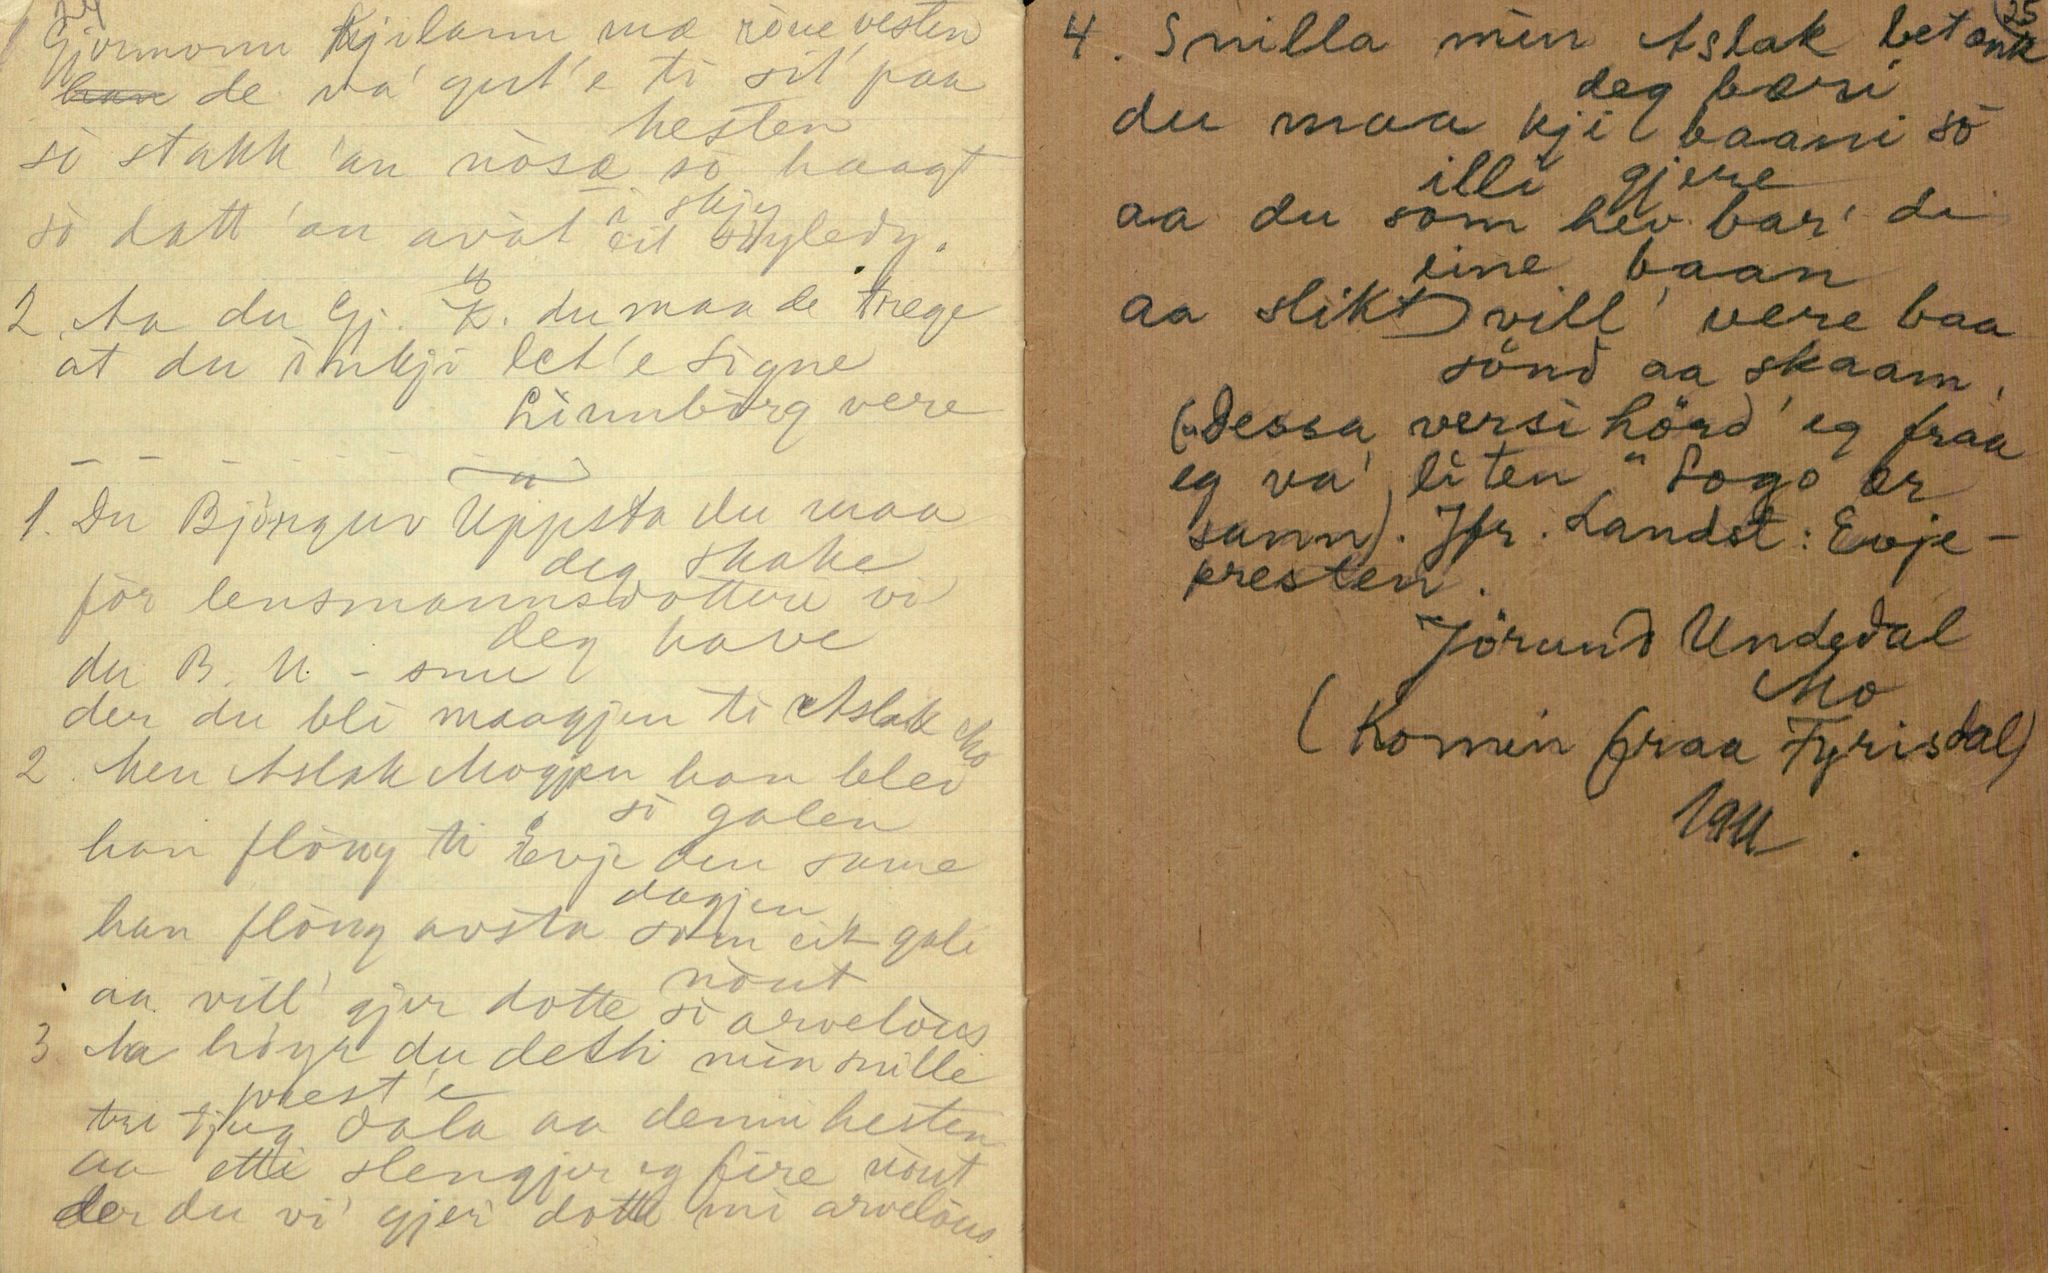 1 Gjermonn Kjilann mæ röue vesten
han de va' gut'e ti sit' paa
hesten
so stakk 'an nosæ so haagt
i sky
so datt 'an avat eit öyledy.
2 Aa du Gj. K. du maa de trege
at du inkji let'e Signe
Linnborg vere
1. Du Björguv Uppsta du maa
deg skake
for lensmannsdottere vi
deg have
du B. U. - snu
der du bli maagjen ti Aslak Mo
2. Men Aslak Mogjen han blei
so galen
han flöug ti Evje den same
dagjen
han flöug avsta som eit gali
nout
aa vill' gjer dotte si arvelöus
3 Aa höyr du dethi min snille
prest'e
tri tjug dala aa denni hesten
aa etti slengjer eg fire nout
der du vi' gjer' dotte mi arvelöus
25
4. Snilla min Aslak betank
deg bæri
du maa kji baani so
illi gjere
aa du som hev bar' di
eine baan
aa slikt vill' vere baa
sönd aa skaam.
(Dessa versi hörd' eg fraa
eg va' liten "Sogo er
sann). Jfr. Landst: Evje-
presten.
Jörund Undedal
Mo
(Komin fraa Fyrisdal)
1911.